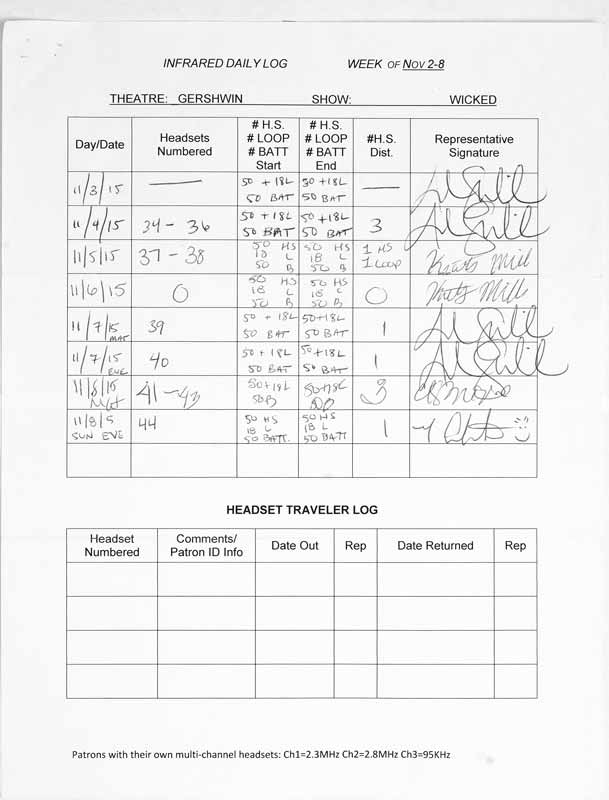 INFRARED DAILY LOG WEEK OF NOV 2-8
THEATRE: GERSHWIN SHOW: WICKED
Day/Date Headsets Numbered # H.S. # LOOP # BATT Start # H.S. # LOOP # BATT End #H.S. Dist. Representative Signature
11/3/15 — 50 + 18L 50 BAT 50 + 18L 50 BAT —
11/4/15 34 - 36 50 + 18L 50 BAT 50 + 18L 50 BAT 3
11/5/15 37 - 38 50 HS 18 L 50 B 50 HS 18 L 50 B 1 HS 1 LOOP
11/6/15 0 50 HS 18 L 50 B 50 HS 18 L 50 B 0
11/7/15 MAT 39 50 + 18L 50 BAT 50+18L 50 BAT 1
11/7/15 EVE 40 50 + 18L 50 BAT 50+18L 50 BAT 1
11/8/15 Mat 41 - 43 50+18L 50B 50+18L 3
11/8/15 SUN EVE 44 50 HS 18 L 50 BATT. 50 HS 18 L 50 BATT 1
HEADSET TRAVELER LOG
Headset Numbered Comments/ Patron ID Info Date Out Rep Date Returned Rep
Patrons with their own multi-channel headsets: Ch1=2.3MHz Ch2=2.8MHz Ch3=95KHz